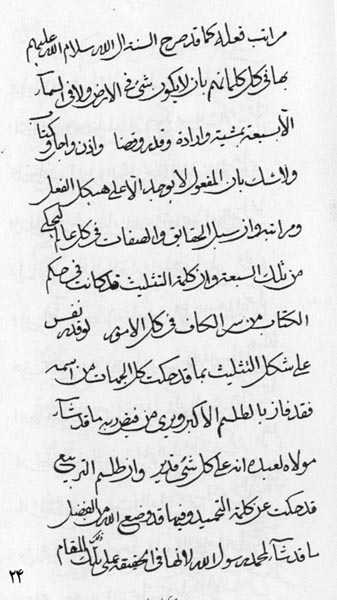 مراتب فعله كما قد صرح السنة ال الله سلام الله عليهم
بها فى كل كلماتهم بان لا يكون شئ فى الارض ولا فى السمآء
الا بسبعة بمشية وارادة وقدر وقضا واذن واجل وكتاب
ولا شك بان المفعول لا يوجد الا على هيكل الفعل
ومراتبه وان سبل الحقايق والصفات فى كل عالم يحكى
من تلك السبعة وان كلمة التثليث قد كانت فى حكم
الكتاب من سر الكاف فى كل الامور لو قدر نفس
على شكل التثليث بما قد حكت كل الجهات من اسمه
فقد فاز بالطلسم الاكبر ويرى من فيض ربه ما قد شآء
مولاه لعبده انه على كل شئ قدير وان طلسم التربيع
قد حكت عن كلمة التحميد وفيها قد وضع الله من الفضل
ما قد شآء لمحمد رسول الله وانها فى الحقيقة على ذلك المقام
٢٤